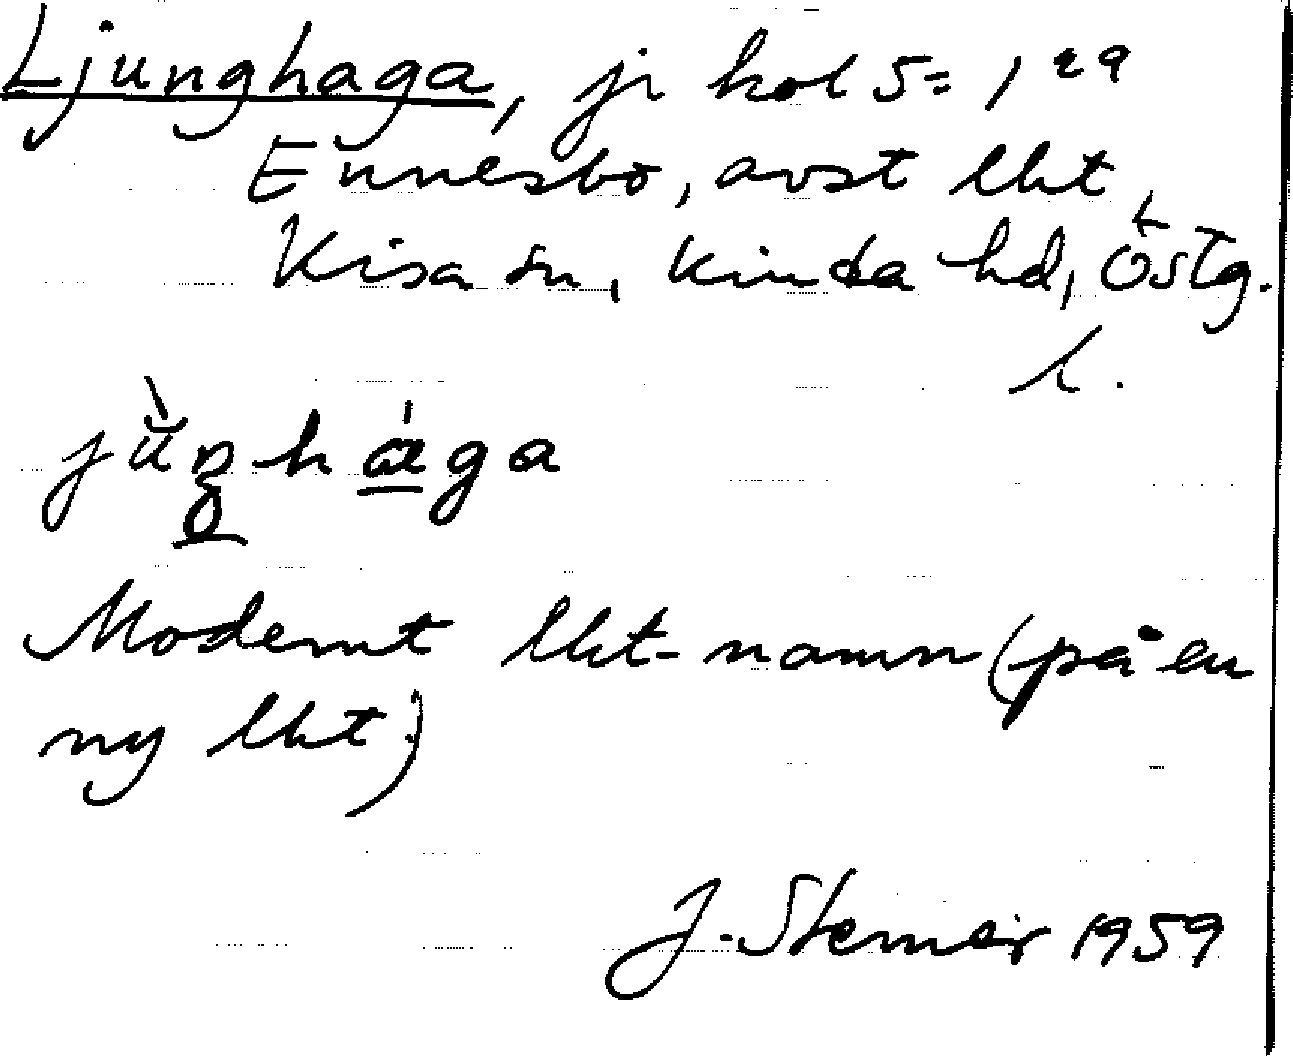 Ljunghaga, jr kol 5 = 1 29
Ennesbo, avst lht,
Kisa sn, Kinda hd, Östg.
l.
Modernt lht-namn (på en
ny lht)
J. Sterner 1959